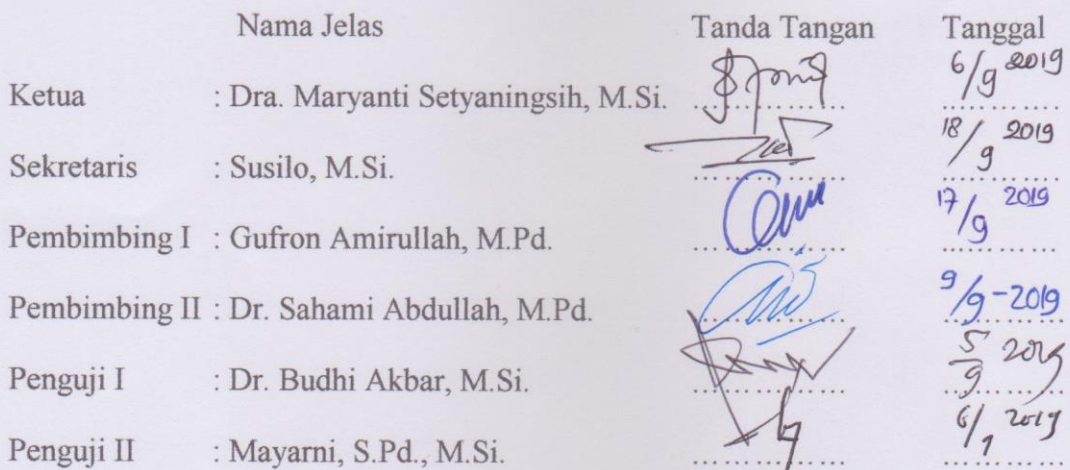 Nama Jelas Tanda Tangan Tanggal
Ketua : Dra. Maryanti Setyaningsih, M.Si. 6/9 2019
Sekretaris : Susilo, M.Si. 18/9 2019
Pembimbing I : Gufron Amirullah, M.Pd. 17/9 2019
Pembimbing II : Dr. Sahami Abdullah, M.Pd. 9/9-2019
Penguji I : Dr. Budhi Akbar, M.Si. 5/9 2019
Penguji II : Mayarni, S.Pd., M.Si. 2019